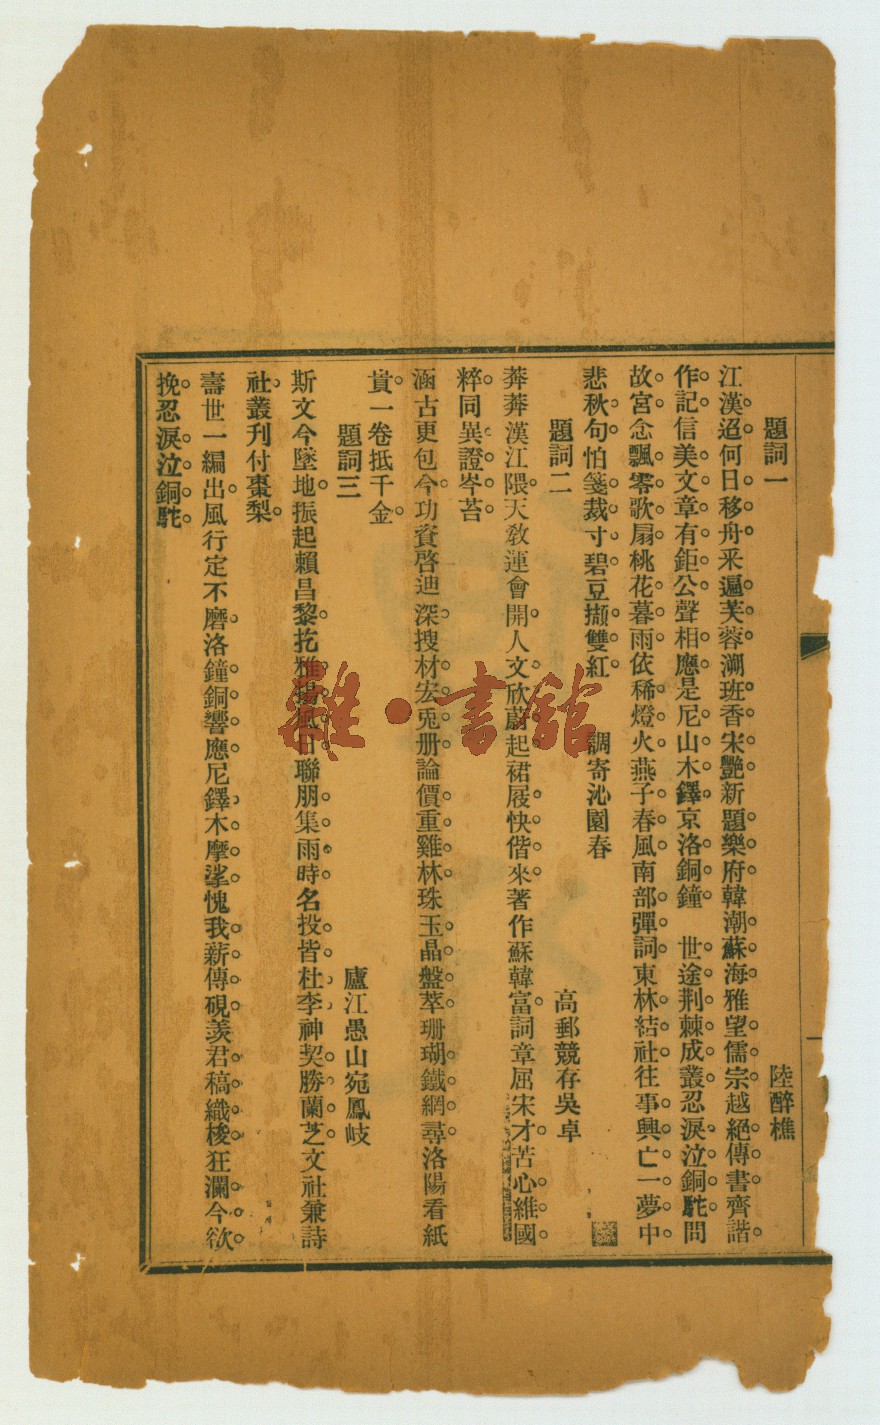 題詞一　陸醉樵
江漢迢迢何日移舟釆遍芙蓉溯班香宋艷新題樂府韓潮蘇海雅望儒宗越絕傳書齊諧
作記信美文章有鉅公聲相應是尼山木鐸京洛銅鐘　世途荆棘成叢忍淚泣銅駝問
故宮念飄零歌扇桃花暮雨依稀燈火燕子春風南部彈詞東林結社往事興亡一夢中
悲秋句怕箋裁寸碧豆擷雙紅　調寄沁園春
題詞二　高郵競存吳卓
莽莽漢江隈天教運會開人文欣蔚起裙屐快偕來著作蘇韓富詞章屈宋才苦心維國
粹同異證岑苔
涵古更包今功資啓迪深搜材宏兎册論價重雞林珠玉晶盤萃珊瑚鐵網尋洛陽看紙
貴一卷抵千金
題詞三　廬江愚山宛鳳岐
斯文今墜地振起賴昌黎扢雅揚風日聯朋集雨時名投皆杜李神契勝蘭芝文社兼詩
社叢刊付棗梨
壽世一編出風行定不磨洛鐘銅響應尼鐸木摩挲愧我薪傳硯羨君稿織梭狂瀾今欲
挽忍淚泣銅駝
雜·書館